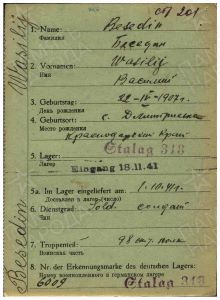 ст 201
Besedin Wasilij
1. Name: Besedin
Фамилия Беседин
2. Vornamen: Wasilij
Имя Василий
3. Geburtstag: 22-IV-1907г.
День рождения
4. Geburtsort: с. Дмитриевка
Место рождения Краснодарский Край
5. Lager: Stalag 318
Лагерь
Eingang 18.11.41
5a. Im Lager eingeliefert am: 1.10.41г.
Доставлен в лагерь (число)
6. Dienstgrad: Sold. солдат
Чин
7. Truppenteil: 98 полк
Воинская часть
8. Nr. der Erkennungsmarke des deutschen Lagers:
Номер военнопленного в германском лагере
6009 Stalag 318